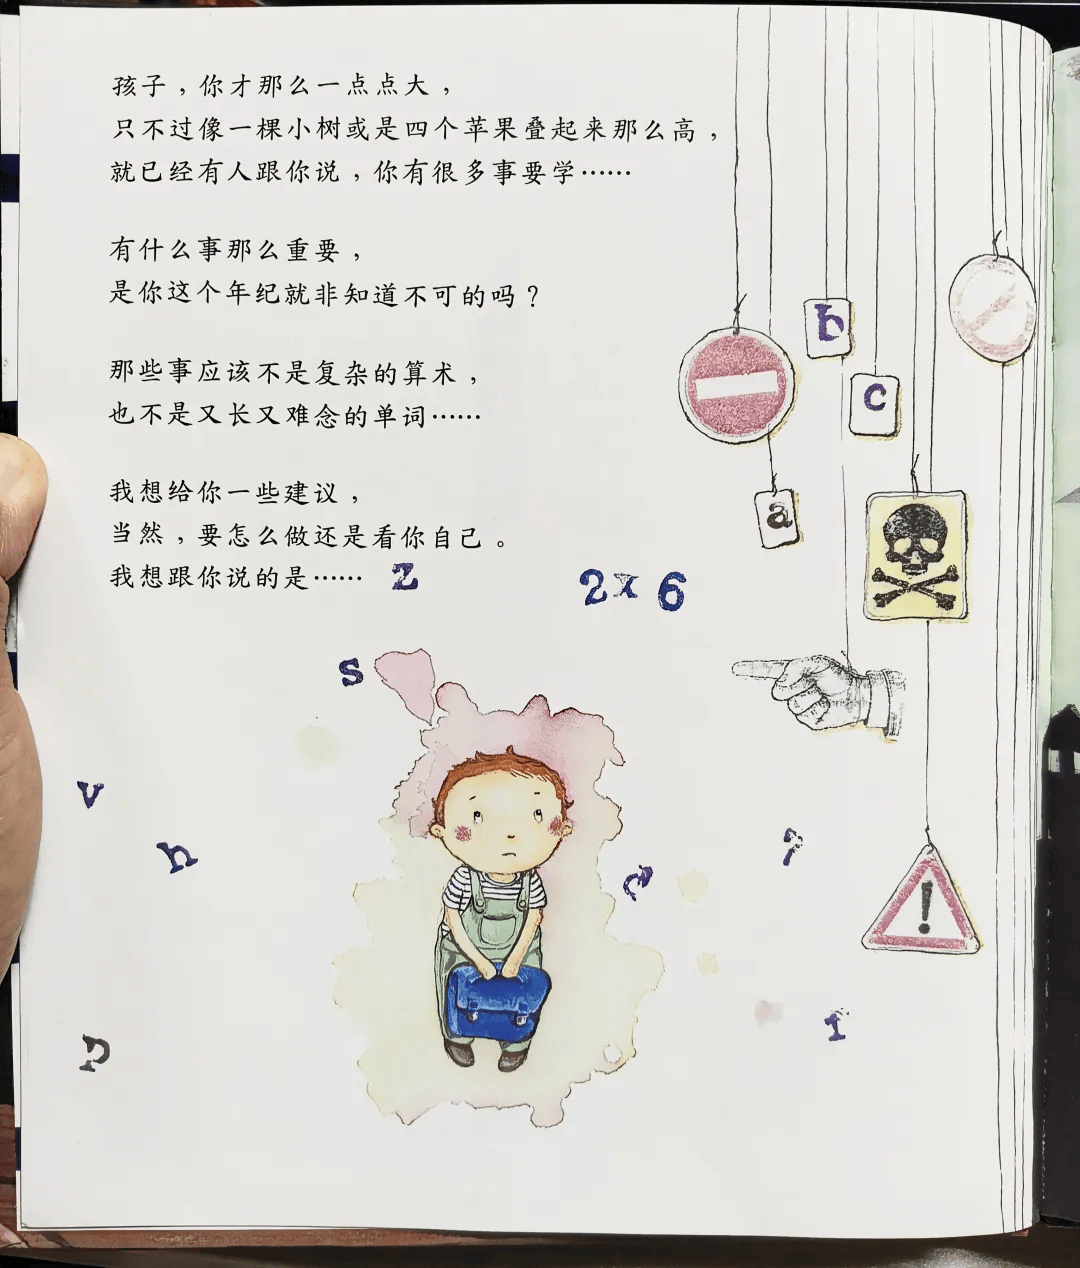 孩子，你才那么一点点大，
只不过像一棵小树或是四个苹果叠起来那么高，
就已经有人跟你说，你有很多事要学……
有什么事那么重要，
是你这个年纪就非知道不可的吗？
那些事应该不是复杂的算术，
也不是又长又难念的单词……
我想给你一些建议，
当然，要怎么做还是看你自己。
我想跟你说的是……
b
c
a
z
2x6
s
v
h
1